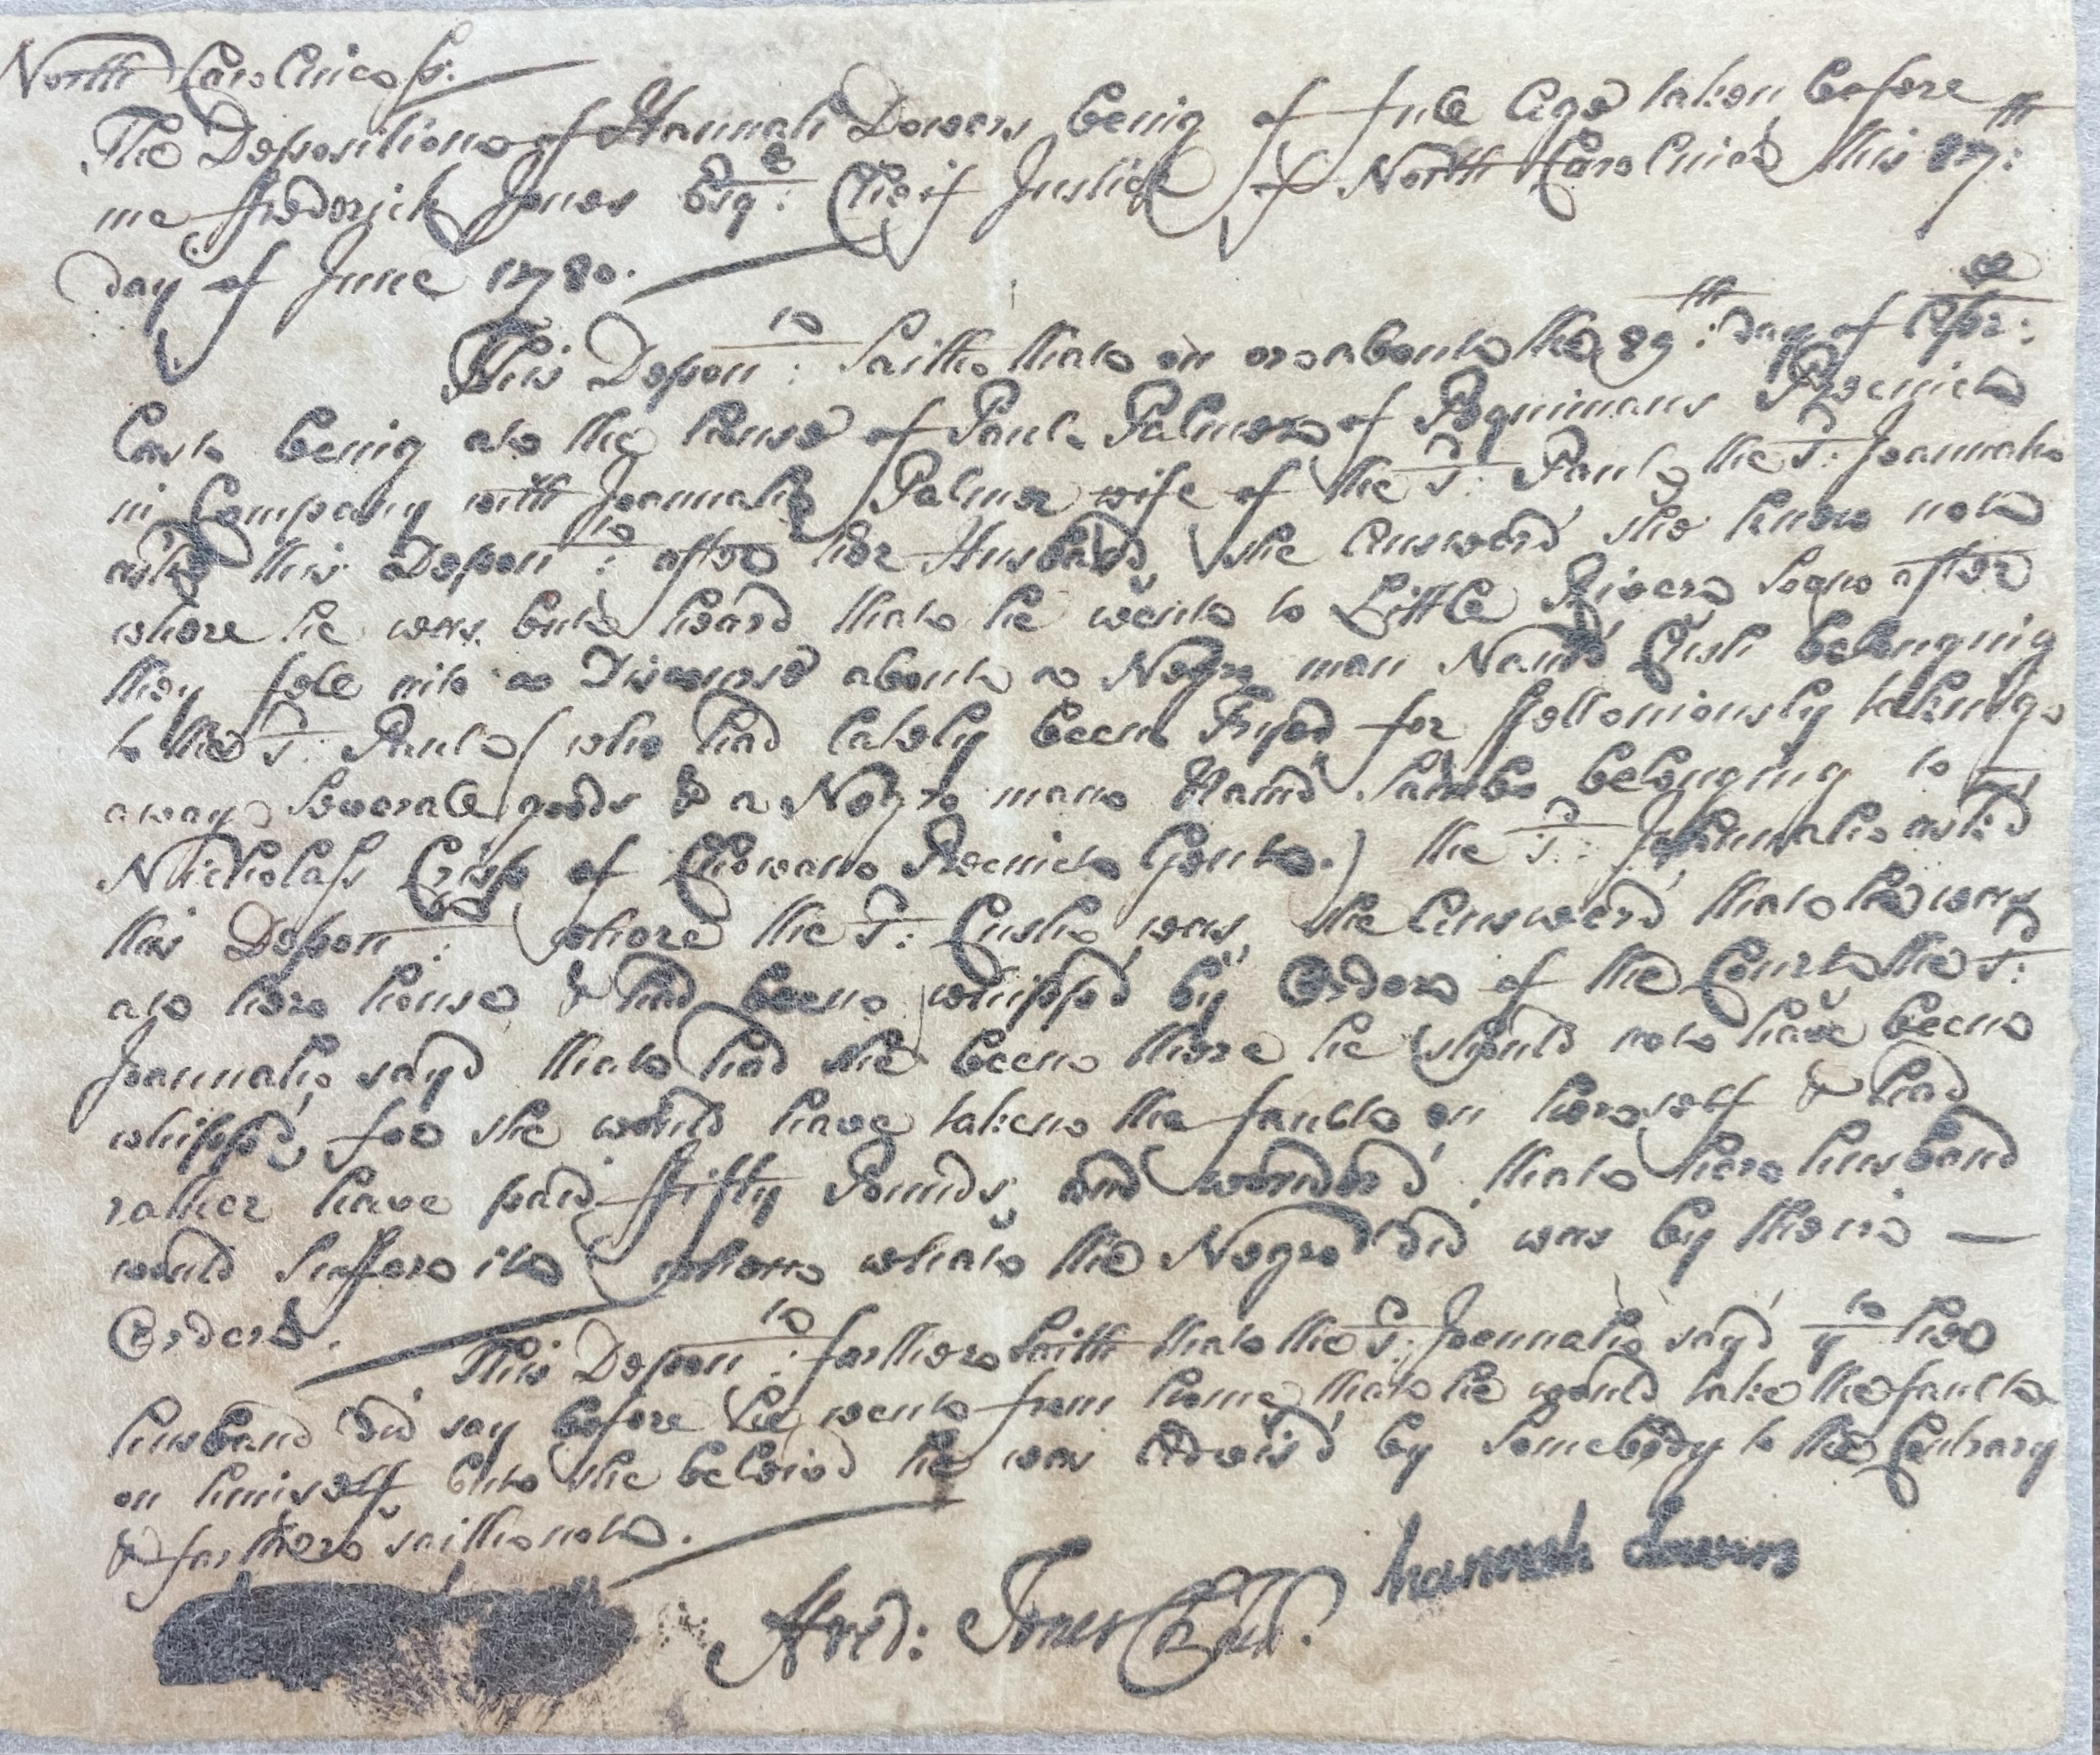 North Carolina ss.
The Deposition of Hannah Dowers being of full Age taken before
me Frederick Jones Esqr: Cheif Justice of North Carolina this 27th:
day of June 1720.
This Depont: Saith that on or about the 29th: day of Apr:
last being at the house of Paul Palmer of Pequimans Precinct
in Company with Joannah Palmer wife of the sd: Paul, the sd: Joannah
askt this Depont: after her Husband, she Answerd she knew not
where he was but heard that he went to Little River soone after
they fell into a Discourse about a Negro man Namd Cush belonging
to the sd: Paul (who had lately been Tryed for ffelloniously taking
away Severall goods & a Negro man Namd Sambo belonging to
Nicholass Crisp of Chowan Precinct Gent.) the sd: Johannah ask'd
this Depont: where the sd: Cush was, she Answerd that he was
at her house & had been whipp'd by Order of the Court, the sd:
Joannah sayd that had she been there he should not have been
whipp'd, for she would have taken the fault on herself & had
rather have paid ffifty Pounds, and wonderd that her husband
would Suffer it when what the Negro did was by their —
Orders.
This Depont: farther Saith that the sd: Joannah say'd yt her
husband did say before he went from home that he would take the fault
on himself but she beleived he was Advis'd by Somebody to the Contrary
& farther saith not.
hannah dowers
Fred: Jones Ch Just.